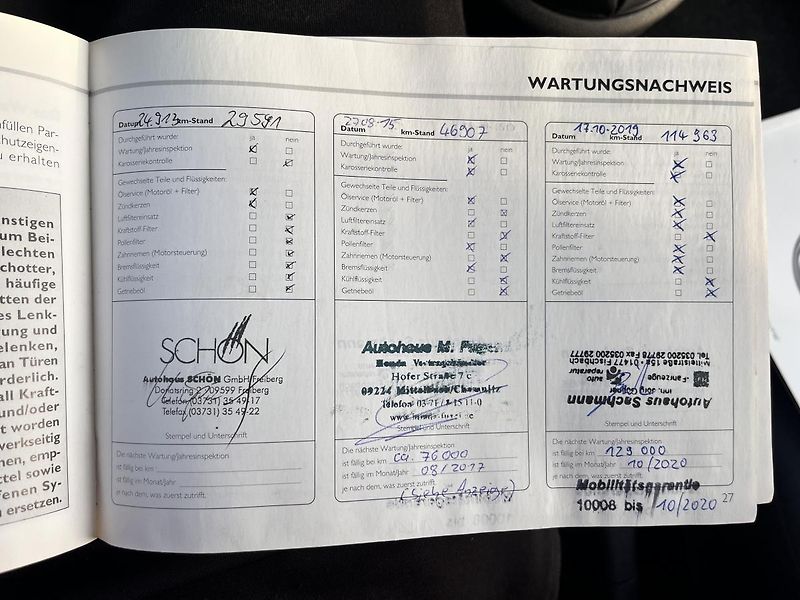 üllen Par-
hutzeigen-
u erhalten
nstigen
um Bei-
lechten
chotter,
häufige
tten der
es Lenk-
rung und
elenken,
an Türen
rderlich.
all Kraft-
und/oder
t worden
werkseitig
en, emp-
ttel sowie
fenen Sy-
ersetzen.
WARTUNGSNACHWEIS
Datum 24.9.13 km-Stand 29591
Durchgeführt wurde: ja nein
Wartung/Jahresinspektion
Karosseriekontrolle
Gewechselte Teile und Flüssigkeiten:
Ölservice (Motoröl + Filter)
Zündkerzen
Luftfiltereinsatz
Kraftstoff-Filter
Pollenfilter
Zahnriemen (Motorsteuerung)
Bremsflüssigkeit
Kühlflüssigkeit
Getriebeöl
SCHÖN
Autohaus SCHÖN GmbH Freiberg
09599 Freiberg
Telefon (03731) 35 49-17
Telefax (03731) 35 49-22
Stempel und Unterschrift
Die nächste Wartung/Jahresinspektion
ist fällig bei km
ist fällig im Monat/Jahr
je nach dem, was zuerst zutrifft.
Datum 27.08.15 km-Stand 46907
Durchgeführt wurde: ja nein
Wartung/Jahresinspektion
Karosseriekontrolle
Gewechselte Teile und Flüssigkeiten:
Ölservice (Motoröl + Filter)
Zündkerzen
Luftfiltereinsatz
Kraftstoff-Filter
Pollenfilter
Zahnriemen (Motorsteuerung)
Bremsflüssigkeit
Kühlflüssigkeit
Getriebeöl
Autohaus M.
Honda Vertragshändler
Hofer Straße 7 c
09224 Mittelbach/Chemnitz
Telefon
Stempel und Unterschrift
Die nächste Wartung/Jahresinspektion
ist fällig bei km ca. 76000
ist fällig im Monat/Jahr 08/2017
je nach dem, was zuerst zutrifft.
(siehe Anzeige)
Datum 17.10.2019 km-Stand 114 963
Durchgeführt wurde: ja nein
Wartung/Jahresinspektion
Karosseriekontrolle
Gewechselte Teile und Flüssigkeiten:
Ölservice (Motoröl + Filter)
Zündkerzen
Luftfiltereinsatz
Kraftstoff-Filter
Pollenfilter
Zahnriemen (Motorsteuerung)
Bremsflüssigkeit
Kühlflüssigkeit
Getriebeöl
Autohaus Sachmann
Inh. Jörg
Fahrzeug auto reparatur
Mittelstraße 15a · 01477 Fischbach
Tel. 035200 29778 Fax 035200 29777
Stempel und Unterschrift
Die nächste Wartung/Jahresinspektion
ist fällig bei km 129 000
ist fällig im Monat/Jahr 10/2020
je nach dem, was zuerst zutrifft.
Mobilitätsgarantie
10008 bis 10/2020
27
10008 bis